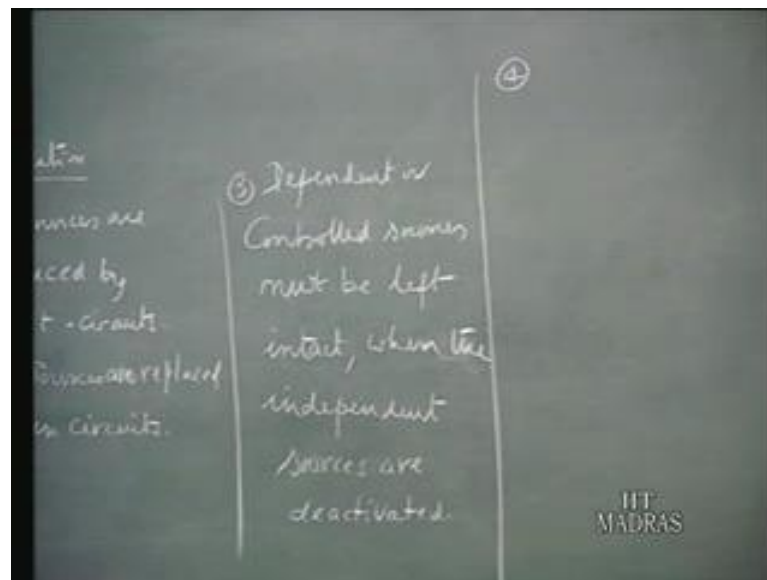 ources are
aced by
t-circuits.
Sources are replaced
en circuits.
③ Dependent or
Controlled sources
must be left
intact, when the
independent
sources are
deactivated.
④
IIT
MADRAS